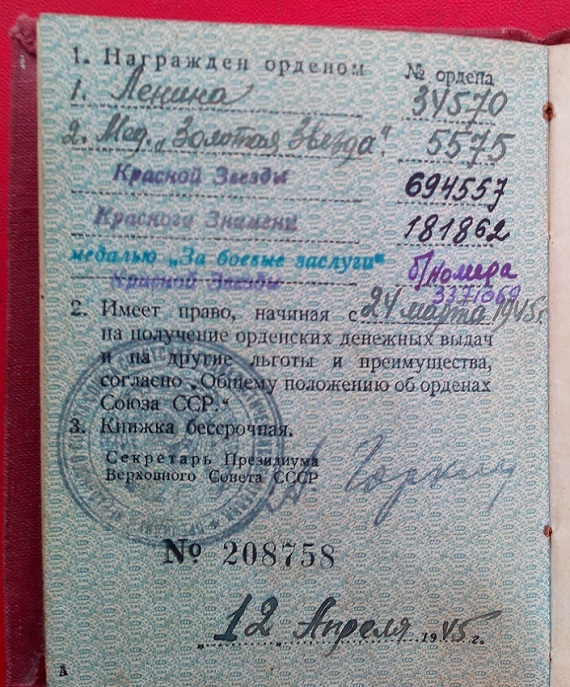 1. Награжден орденом № ордена
1. Ленина 34570
2. Мед. „Золотая Звезда". 5575
Красной Звезды 694557
Красного Знамени 181862
медалью „За боевые заслуги" б/номера
Красной Звезды 3371069
2. Имеет право, начиная с 24 марта 1945 г.
на получение орденских денежных выдач
и на другие льготы и преимущества,
согласно „Общему положению об орденах
Союза ССР."
3. Книжка бессрочная.
Секретарь Президиума
Верховного Совета СССР
А. Горкин
№ 208758
„ 12 " Апреля 1945 г.
А